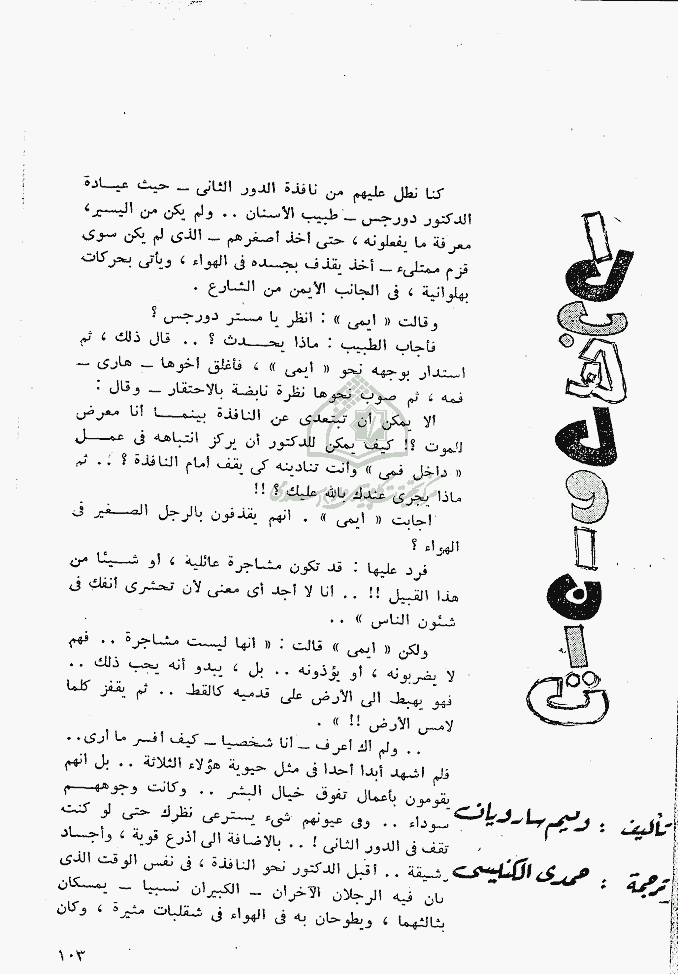 كنا نطل عليهم من نافذة الدور الثانى ــ حيث عيــادة
الدكتور دورجس ــ طبيب الأسنان .. ولم يكن من اليسير،
معرفة ما يفعلونه ، حتى أخذ أصغرهم ــ الذى لم يكن سوى
قزم ممتلىء ــ أخذ يقذف بجسده فى الهواء ، ويأتى بحركات
بهلوانية ، فى الجانب الأيمن من الشارع .
وقالت « ايمى » : انظر يا مستر دورجس ؟
فأجاب الطبيب : ماذا يحــدث ؟ .. قال ذلك ، ثم
استدار بوجهه نحو « ايمى » ، فأغلق أخوها ــ هارى ــ
فمه ، ثم صوب نحوها نظرة نابضة بالاحتقار ــ وقال :
ألا يمكن أن تبتعدى عن النافذة بينمــا أنا معرض
للموت ؟! كيف يمكن للدكتور أن يركز انتباهه فى عمــل
« داخل فمى » وأنت تنادينه كى يقف أمام النافذة ؟ .. ثم
ماذا يجرى عندك بالله عليك ؟ !!
اجابت « ايمى » . انهم يقذفون بالرجل الصــغير فى
الهواء ؟
فرد عليها : قد تكون مشاجرة عائلية ، أو شــيئا من
هذا القبيل !! .. أنا لا أجد أى معنى لأن تحشرى أنفك فى
شئون الناس » ..
ولكن « ايمى » قالت : « انها ليست مشاجرة .. فهم
لا يضربونه ، أو يؤذونه .. بل ، يبدو أنه يحب ذلك ..
فهو يهبط الى الأرض على قدميه كالقط .. ثم يقفز كلما
لامس الأرض !! » .
.. ولم أك أعرف ــ أنا شخصيا ــ كيف أفسر ما أرى..
فلم اشهد أبدا أحدا فى مثل حيوية هؤلاء الثلاثة .. بل انهم
يقومون بأعمال تفوق خيال البشر .. وكانت وجوههــم
سوداء .. وفى عيونهم شىء يسترعى نظرك حتى لو كنت
تقف فى الدور الثانى ! .. بالاضافة الى أذرع قوية ، وأجساد
رشيقة .. أقبل الدكتور نحو النافذة ، فى نفس الوقت الذى
كان فيه الرجلان الآخران ــ الكبيران نسبيا ــ يمسكان
بثالثهما ، ويطوحان به فى الهواء فى شقلبات مثيرة ، وكان
تأليف : وليم سارويان
ترجمة : حمدى الكنليسى
١٠٣